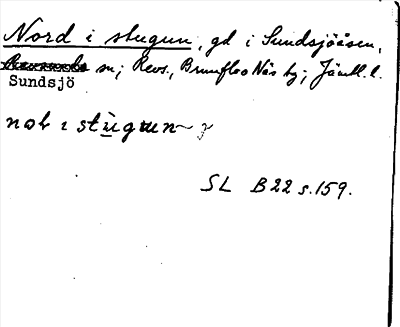 Nord i stugun, gd i Sundsjöåsen,
sn; Revs., Brunflo Näs tg; Jämtl. l.
Sundsjö
SL B22 s.159.